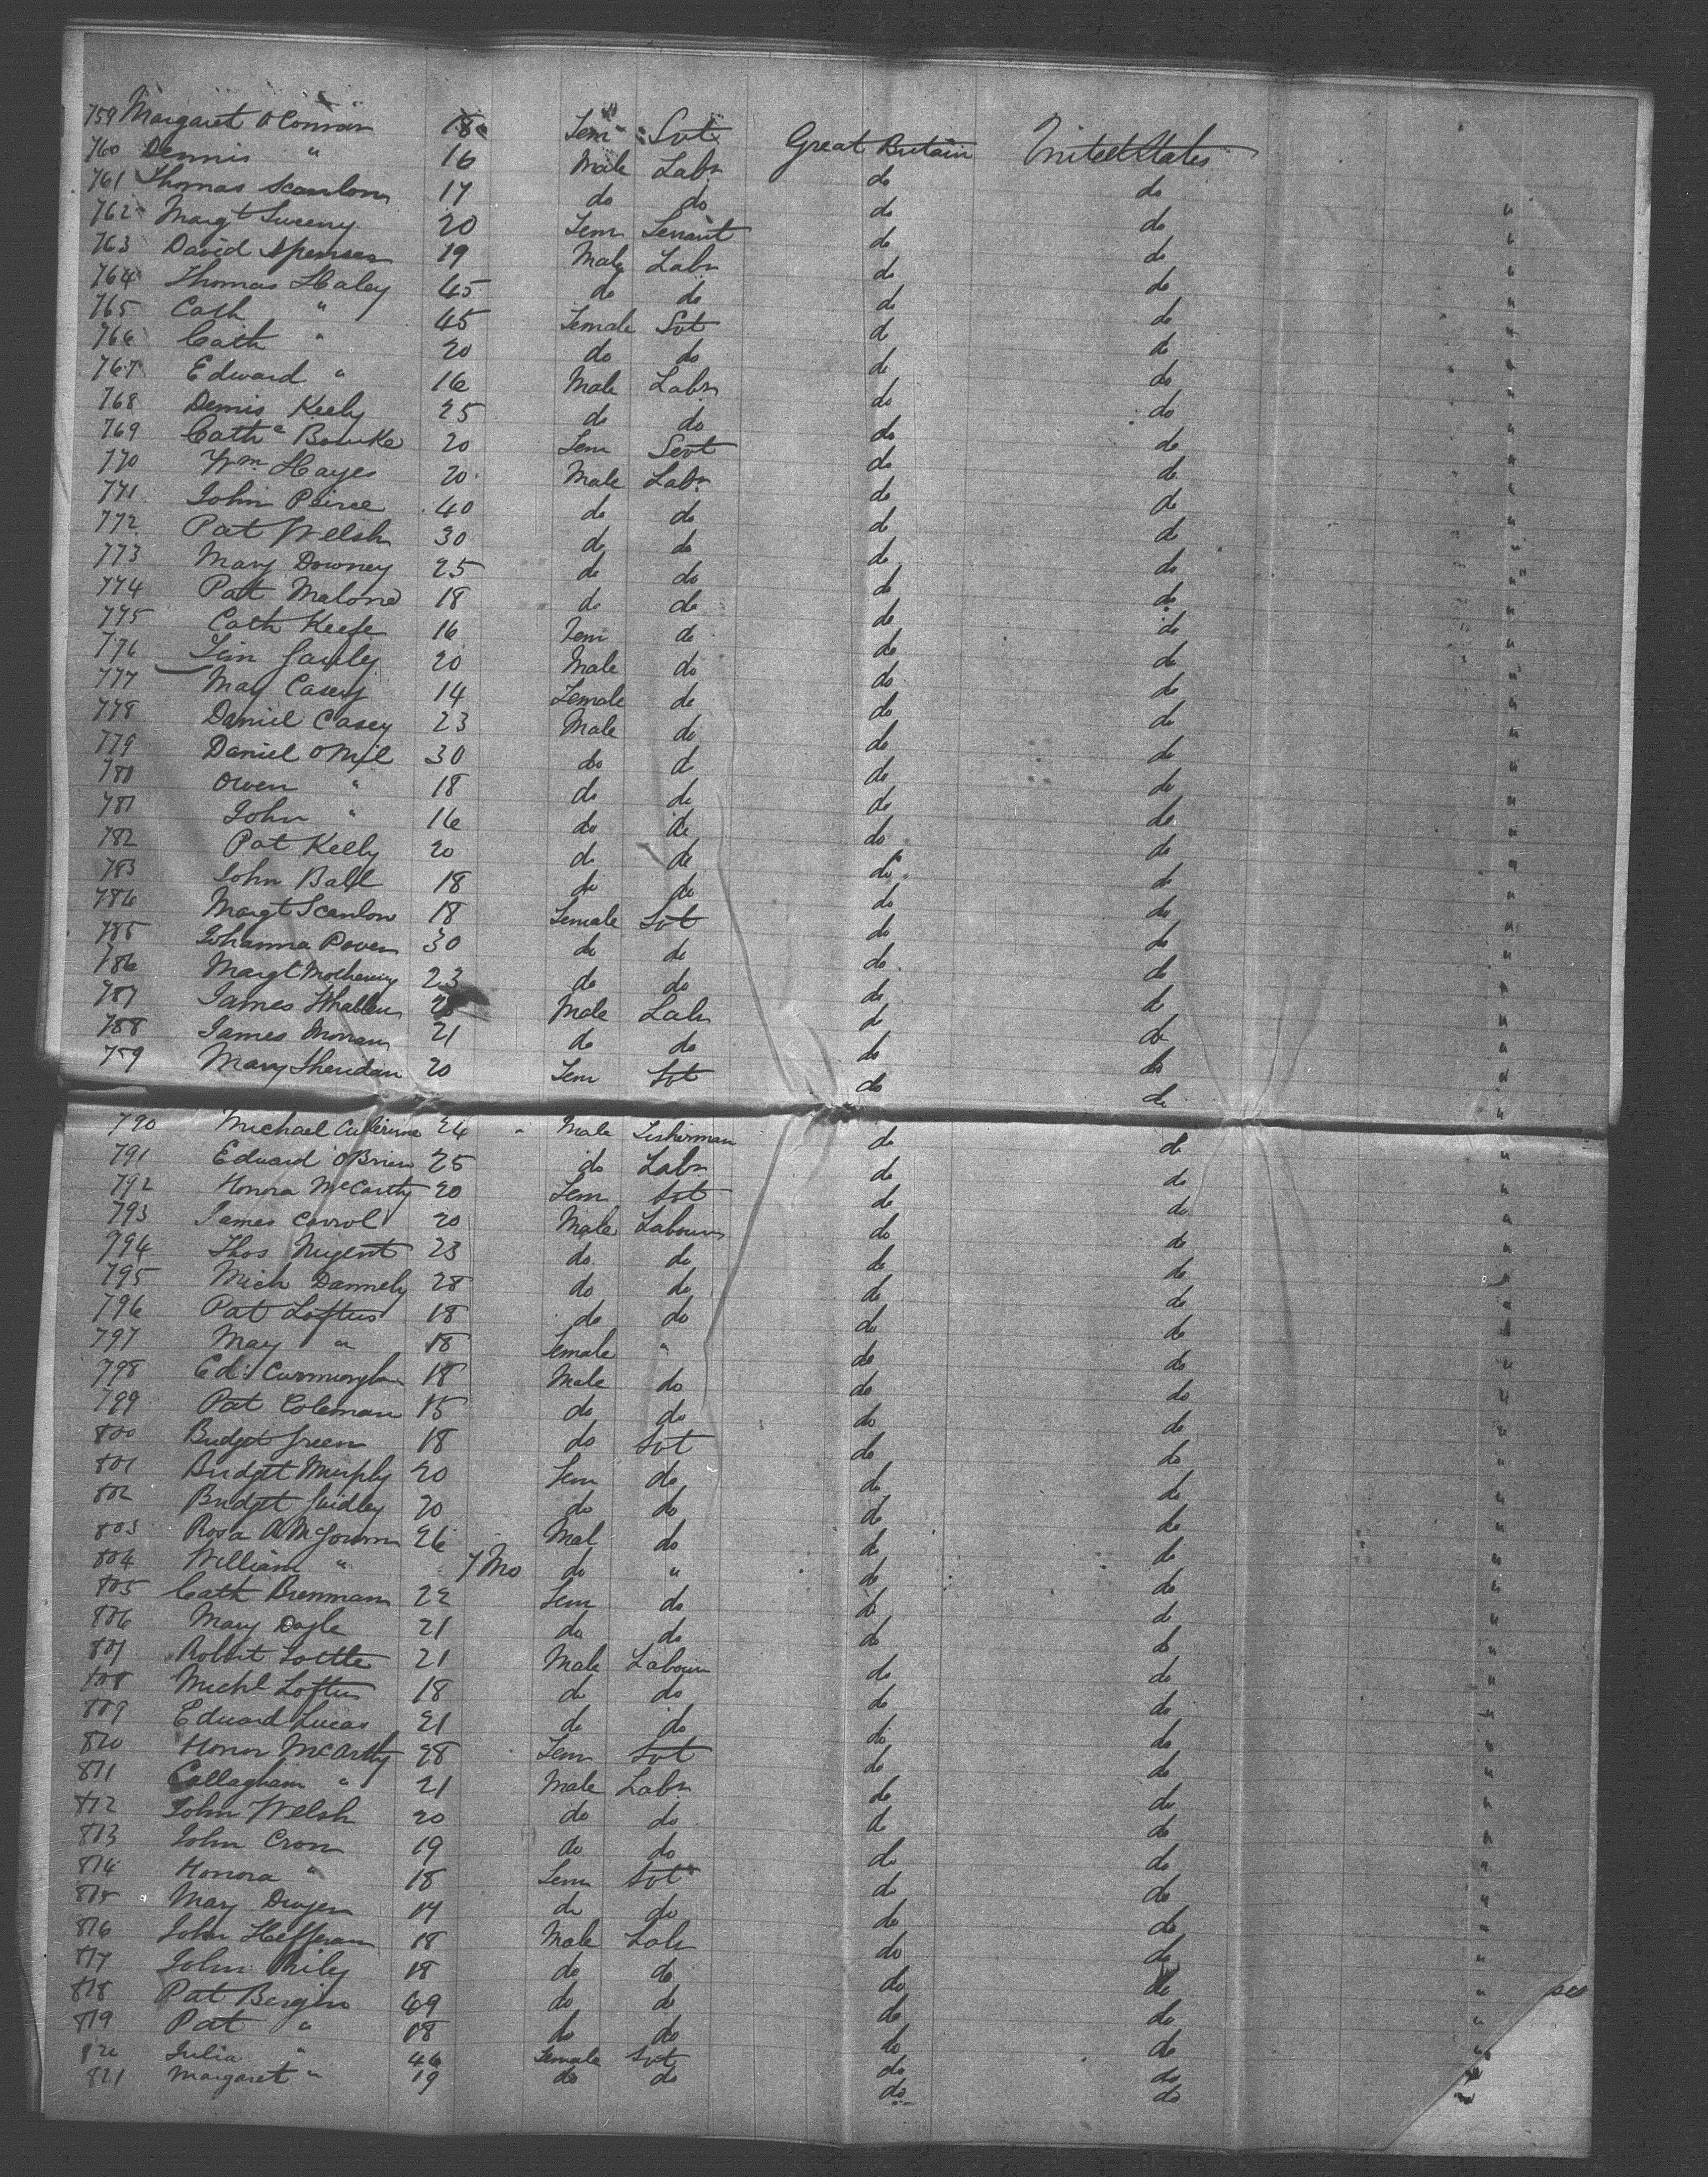 759 Margaret O Connor 18 Fem Svt Great Britain United States
760 Dennis " 16 Male Labr do do
761 Thomas Scanlon 17 do do do do "
762 Margt Sweeny 20 Fem Servant do do "
763 David Spenser 19 Male Labr do do "
764 Thomas Haley 45 do do do do "
765 Cath " 45 Female Svt do do "
766 Cath " 20 do do do do "
767 Edward " 16 Male Labr do do "
768 Dennis Keely 25 do do do do "
769 Cath Bourke 20 Fem Sevt do do "
770 Wm Hayes 20 Male Labr do do "
771 John Peirce 40 do do do do "
772 Pat Welsh 30 do do do do "
773 Mary Downey 25 do do do do "
774 Pat Malone 18 do do do do "
775 Cath Keefe 16 Fem do do do "
776 Tim 20 Male do do do "
777 May Casey 14 Female do do do "
778 Daniel Casey 23 Male do do do "
779 Daniel 30 do do do do "
780 Owen " 18 do do do do "
781 John " 16 do do do do "
782 Pat Kelly 20 do do do do "
783 John Ball 18 do do do do "
784 Margt Scanlon 18 Female Svt do do "
785 Johanna Power 30 do do do do "
786 Margt 23 do do do do "
787 James Whallen Male Labr do do "
788 James 21 do do do do "
759 Mary Sheridan 20 Fem Svt do do "
790 Michael 24 Male Fisherman do do "
791 Edward O'Brien 25 do Labr do do "
792 Honora McCarthy 20 Fem Svt do do "
793 James Carrol 20 Male Labourer do do "
794 Thos Nugent 23 do do do do "
795 Mich Dannely 28 do do do do "
796 Pat Loftus 18 do do do do "
797 May " 18 Female " do do "
798 Ed Cunningham 18 Male do do do "
799 Pat Coleman 15 do do do do "
800 Bridget Green 18 do Svt do do "
801 Bridget Murphy 20 Fem do do do "
802 Bridget 20 do do do do "
803 Rosa A McGowan 26 Mal do do do "
804 William " 7 Mo do " do do "
805 Cath Brennan 22 Fem do do do "
806 Mary Doyle 21 do do do do "
807 Robert 21 Male Labour do do "
808 Michl Loftus 18 do do do do "
809 Edward Lucas 21 do do do do "
810 Honor McCarthy 28 Fem Svt do do "
811 Callaghan " 21 Male Labr do do "
812 John Welsh 20 do do do do "
813 John Cron 19 do do do do "
814 Honora " 18 Fem Svt do do "
815 Mary Dwyer 17 do do do do "
816 John Heffernan 18 Male Labr do do "
817 John Riley 18 do do do do "
818 Pat Bergin 49 do do do do "
819 Pat " 18 do do do do "
820 Julia " 46 Female Svt do do "
821 Margaret " 19 do do do do "